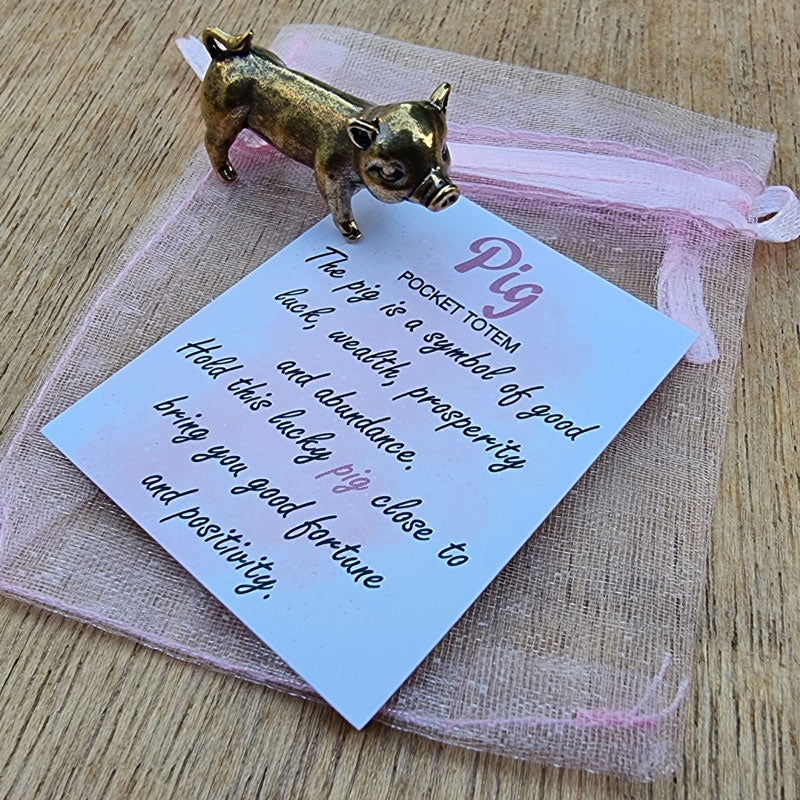 Pig
POCKET TOTEM
The pig is a symbol of good
luck, wealth, prosperity
and abundance.
Hold this lucky pig close to
bring you good fortune
and positivity.